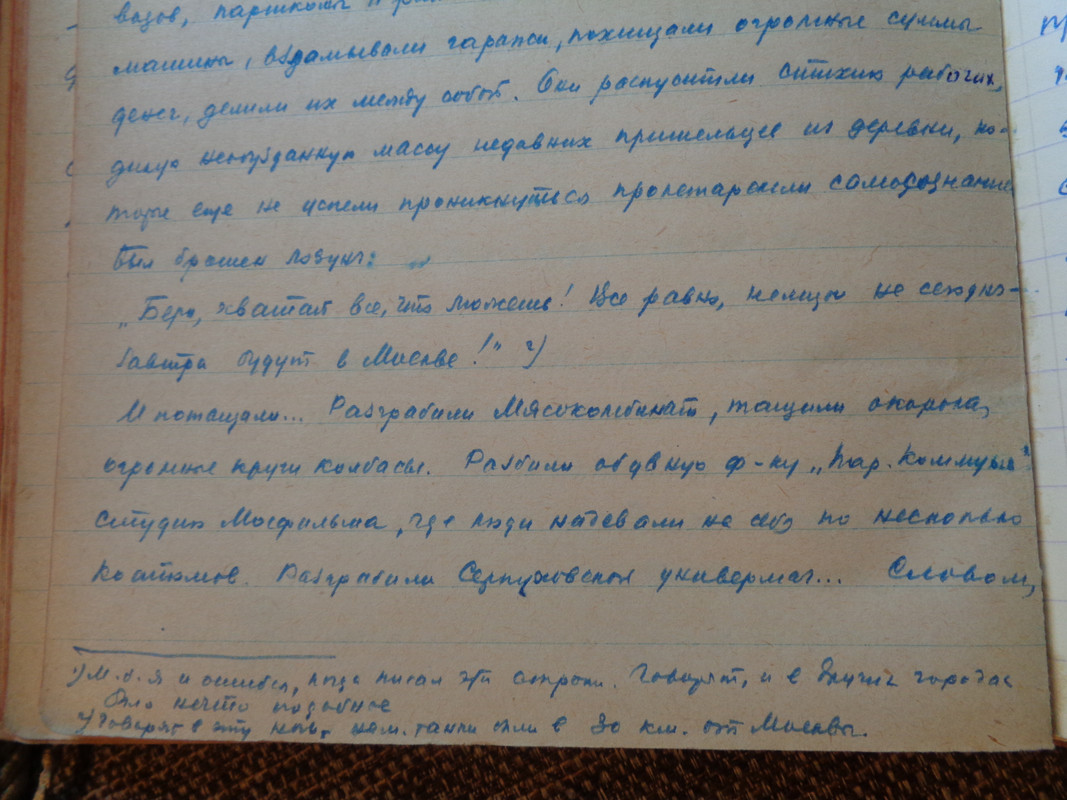 возов, парткомы и
машины, взламывали гаражи, похищали огромные суммы
денег, делили их между собой. Они распустили стихию рабочих,
дикую необузданную массу недавних пришельцев из деревни, ко-
торые еще не успели проникнуться пролетарским самосознание
Был брошен лозунг: „
„Бери, хватай все, что можешь! Все равно, немцы не сегодня-
завтра будут в Москве!" 2)
И потащили... Разграбили Мясокомбинат, тащили окорока,
огромные круги колбасы. Разбили обувную ф-ку „Пар. Коммуна"
студию Мосфильма, где люди надевали на себя по несколько
костюмов. Разграбили Серпуховской универмаг... Словом,
1) М.б. я и ошибся, когда писал эти строки. Говорят, и в других городах
было нечто подобное
2) Говорят в эту ночь нем. танки были в 30 км. от Москвы.